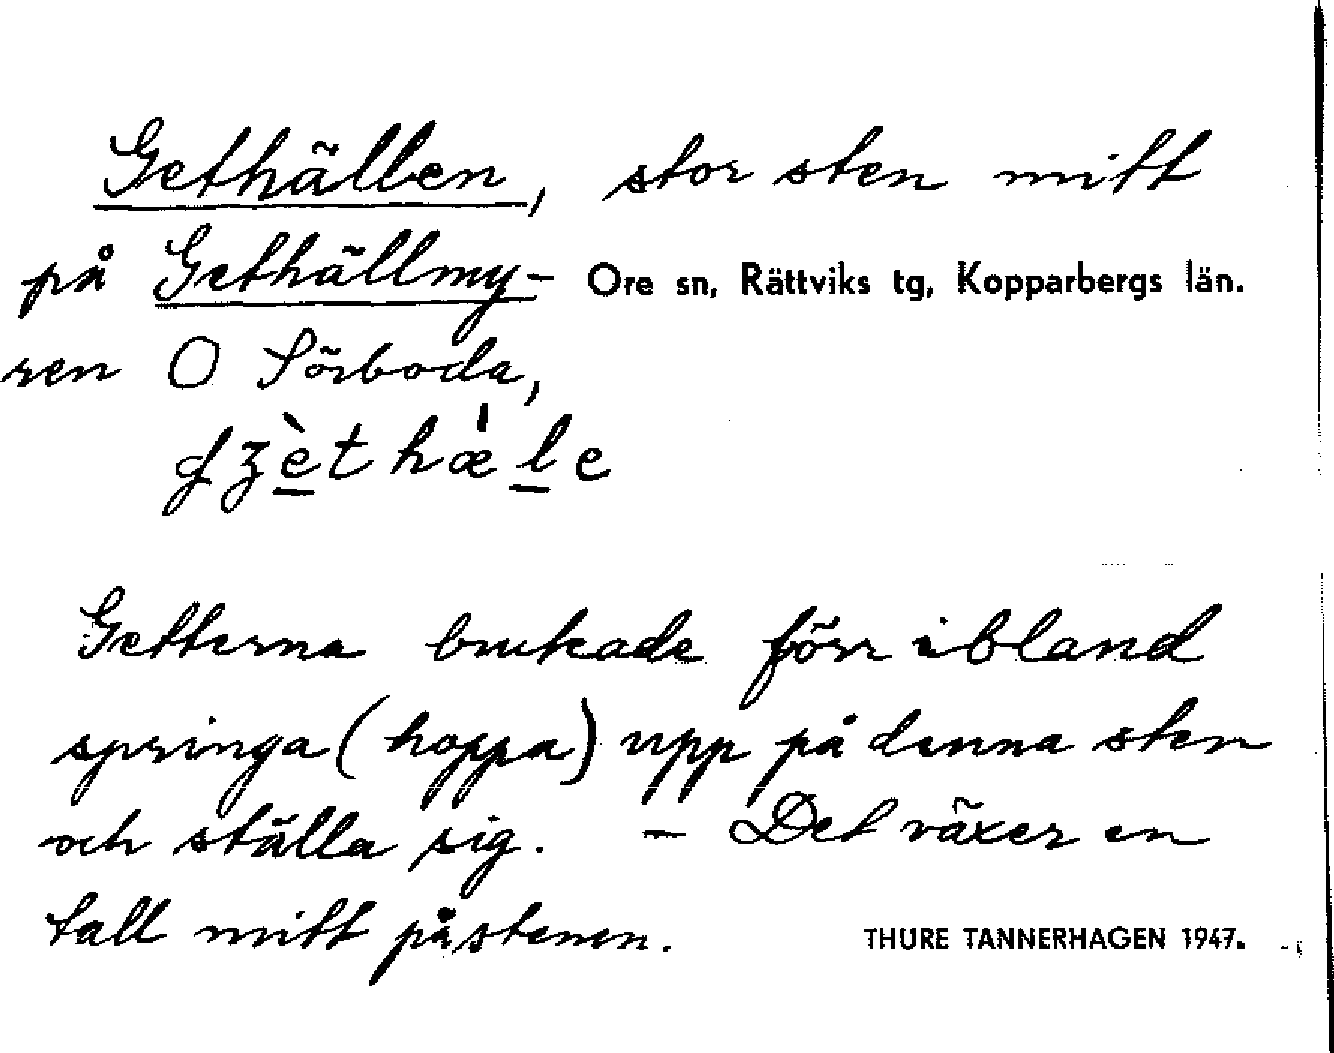 Gethällen, stor sten mitt
på Gethällmy- Ore sn, Rättviks tg, Kopparbergs län.
ren O Sörboda,
Getterna brukade förr ibland
springa (hoppa) upp på denna sten
och ställa sig. – Det växer en
tall mitt på stenen. THURE TANNERHAGEN 1947.